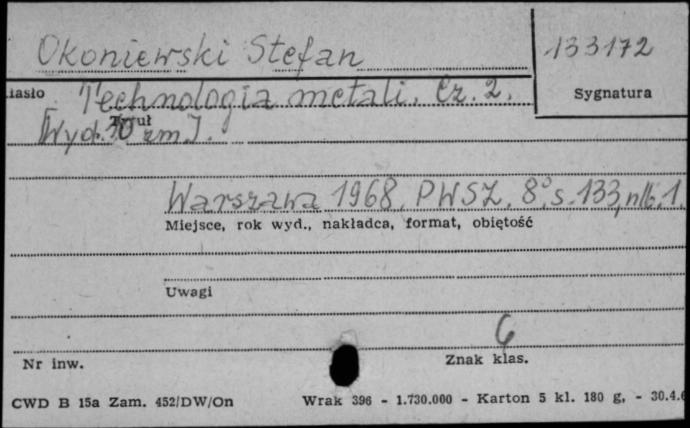 Okoniewski Stefan 133172
iasło Technologia metali. Cz. 2. Sygnatura
Tytuł
[Wyd. 10 zm].
Warszawa 1968, PWSZ, 8° s. 133, nlb. 1.
Miejsce, rok wyd., nakładca, format, obiętość
Uwagi
6
Nr inw. Znak klas.
CWD B 15a Zam. 452/DW/On Wrak 396 - 1.730.000 - Karton 5 kl. 180 g, - 30.4.6